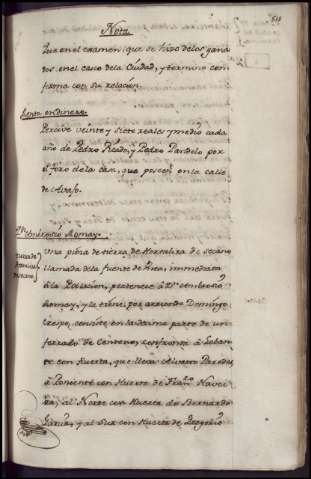 Nota
Que en el examen, que se hizo delos gana
dos, en el casco dela Ciudad, y termino con
firma con su relación.
Renta en dinero
Percive veinte y siete reales y medio cada
año de Pedro y Pedro Pardela por
el foro dela casa, que poseen en la calle
de
Ambrosio Romay.
Una pieza de tierra de Hortaliza de secano
llamada dela fuente de inmediata
â la Poblacion, pertenece â Dn. Ambrosio
Romay, y la tiene por arriendo Domingo
Crespo, consiste en la decima parte de un
ferrado de centeno, confronta â Levan
te con Huerta, que lleva Alverto Paredes
â Poniente con Huerta de Franco. Navei
ra, al Norte con Huerta de Bernardo
y al Sur con Huerta de Gregorio